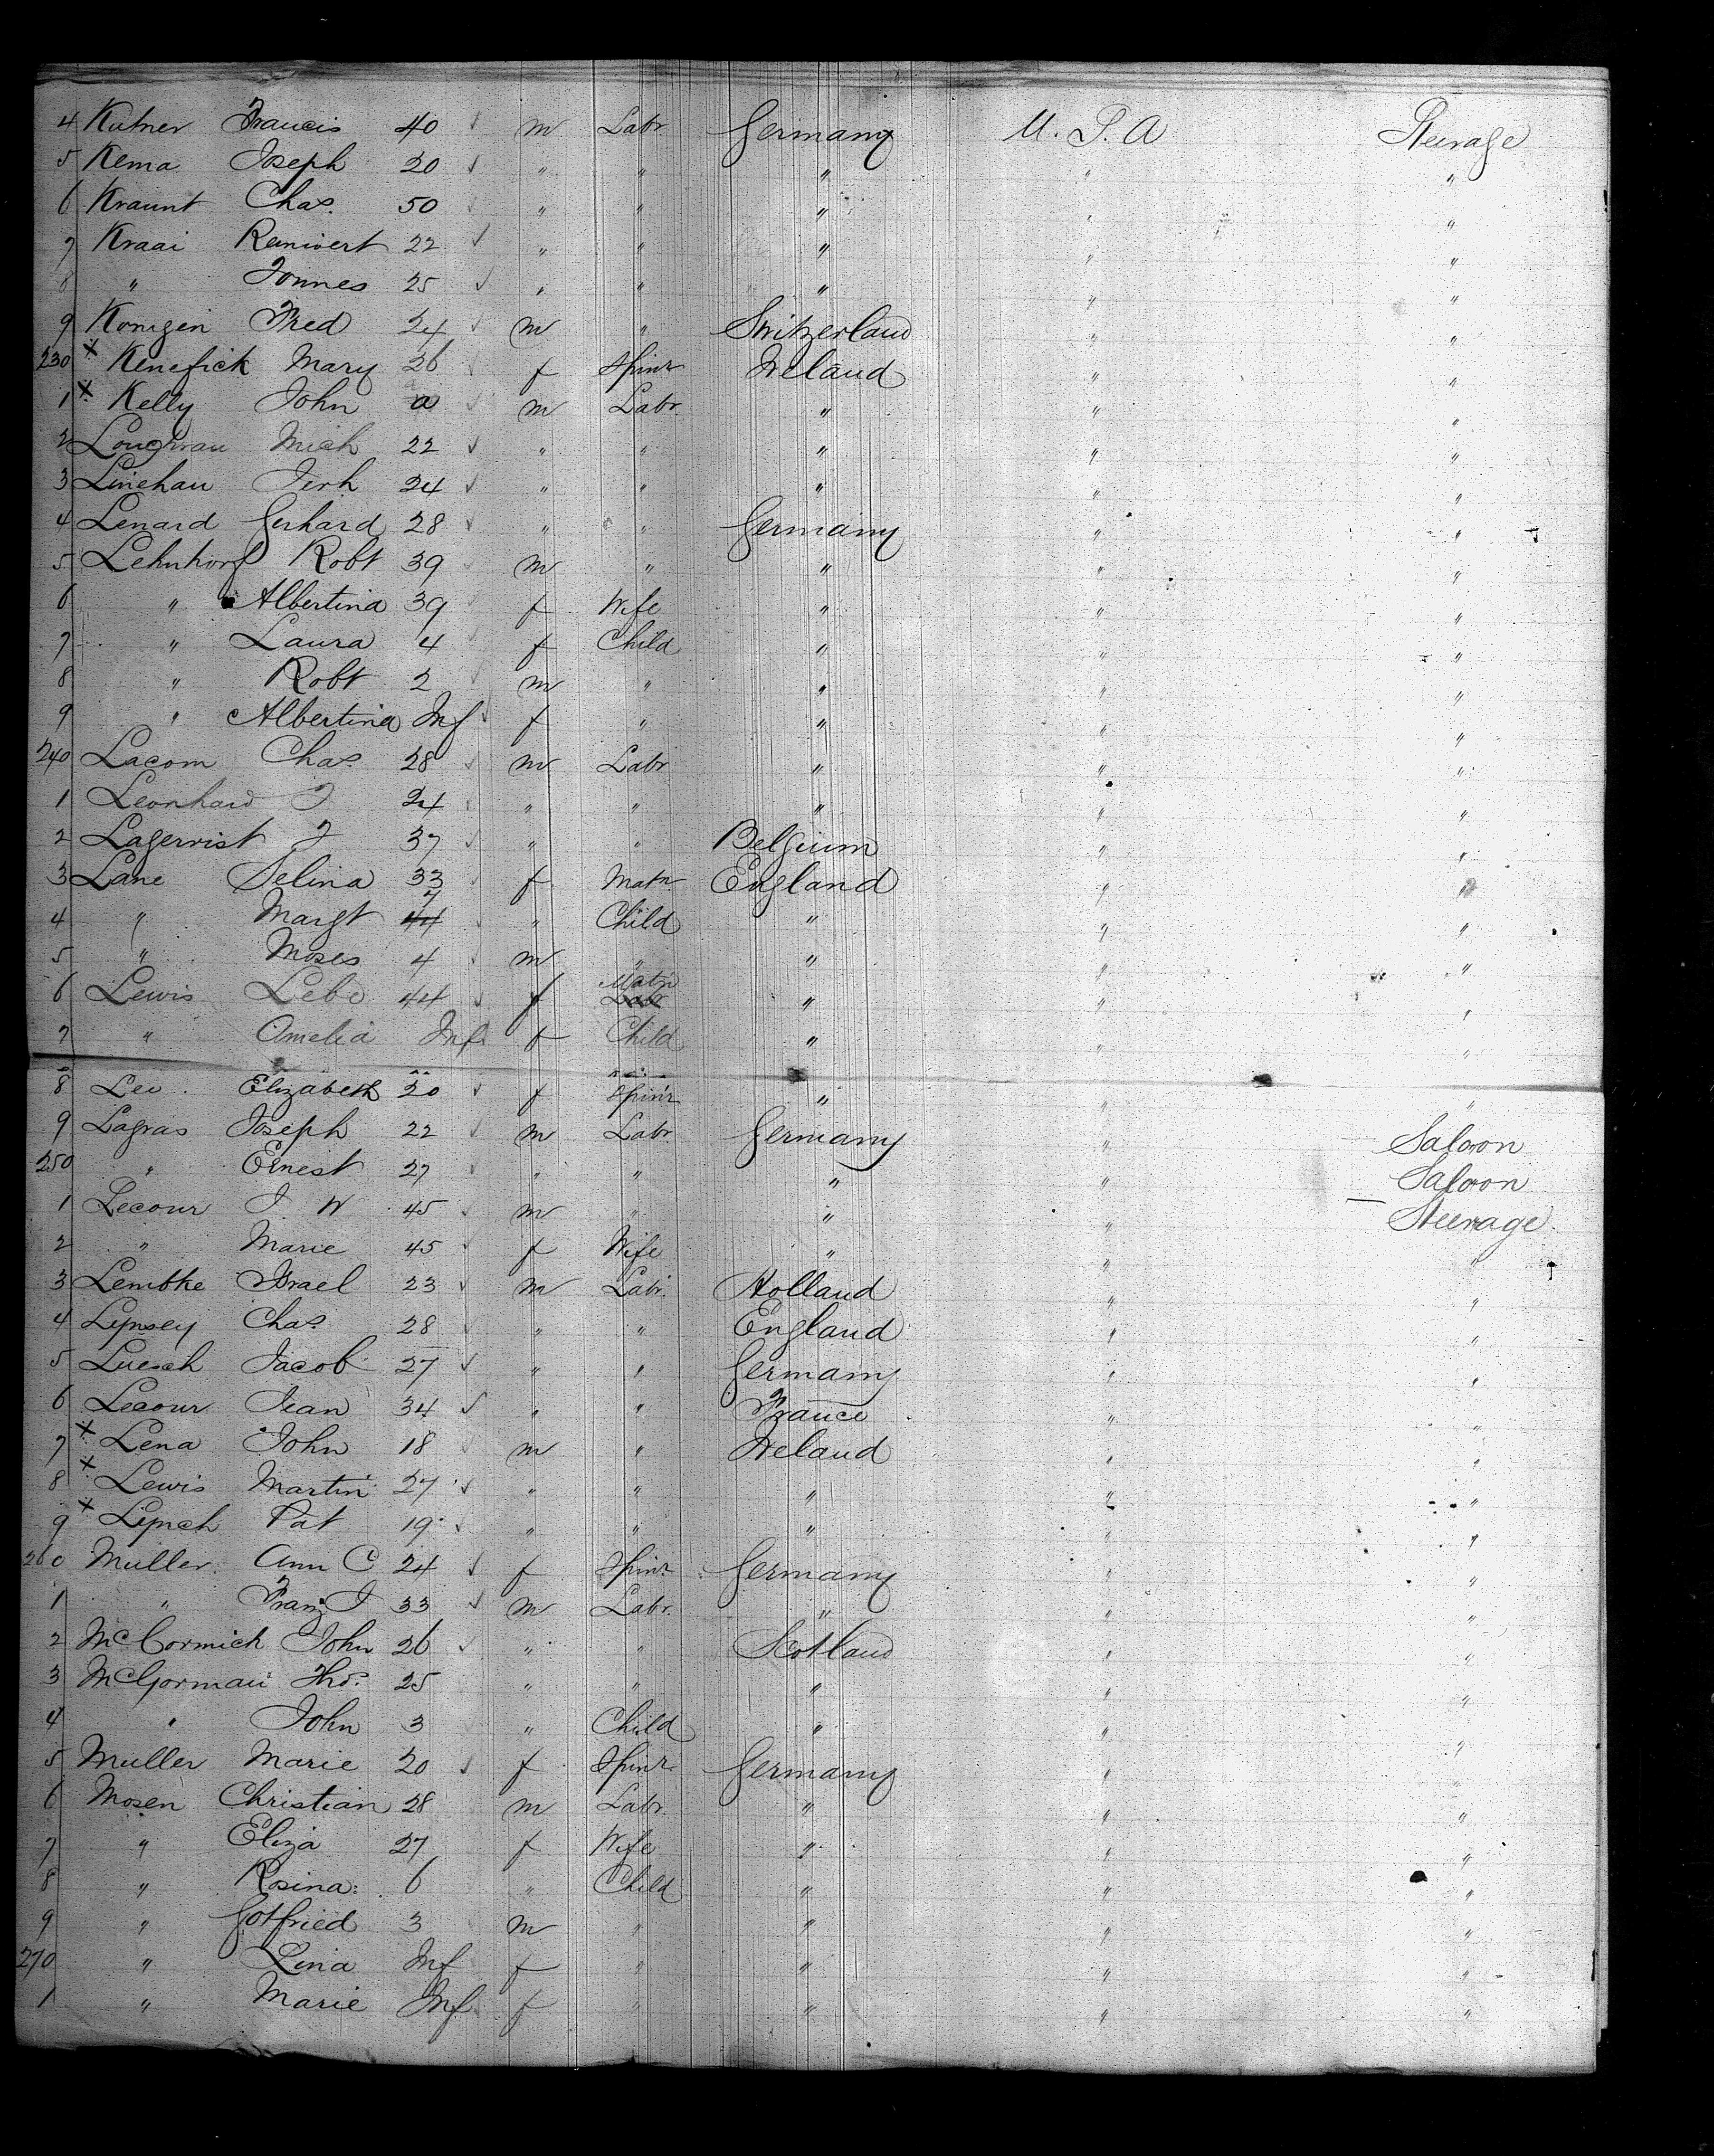 4 Kutner Francis 40 ✓ m Labr. Germany U.S.A Steerage
5 Kema Joseph 20 ✓ " " " " "
6 Kraunt Chas. 50 ✓ " " " " "
7 Kraai Reinivert 22 ✓ " " " " "
8 " Tonnes 25 ✓ " " " " "
9 Konigen Fred 24 ✓ m " Switzerland " "
230 x Kenefick Mary 26 ✓ f Spinr Ireland " "
1 x Kelly John a ✓ m Labr. " " "
2 Loughran Mich 22 ✓ " " " " "
3 Linehan Jerh 24 ✓ " " " " "
4 Lenard Gerhard 28 ✓ " " Germany " "
5 Robt 39 ✓ m " " " "
6 " Albertina 39 ✓ f Wife " " "
7 " Laura 4 ✓ f Child " " "
8 " Robt 2 ✓ m " " " "
9 " Albertina Inf ✓ f " " " "
240 Lacom Chas. 28 ✓ m Labr " " "
1 Leonhard J 24 ✓ " " " " "
2 Lagerrist J 37 ✓ " " Belgium " "
3 Lane Selina 33 ✓ f Matn England " "
4 " Margt 7 ✓ " Child " " "
5 " Moses 4 ✓ m " " " "
6 Lewis 44 ✓ f Matn " " "
7 " Amelia Inf f Child " " "
8 Lee Elizabeth 20 ✓ f Spinr " " "
9 Lagras Joseph 22 ✓ m Labr Germany " Saloon
250 " Ernest 27 ✓ " " " " Saloon
1 Lecour J W 45 ✓ m " " " Steerage
2 " Marie 45 ✓ f Wife " " "
3 Lembke Israel 23 ✓ m Labr. Holland " "
4 Lipsey Chas. 28 ✓ " " England " "
5 Luesch Jacob 27 ✓ " " Germany " "
6 Lecour Jean 34 ✓ " " France " "
7 x Lena John 18 ✓ m " Ireland " "
8 x Lewis Martin 27 ✓ " " " " "
9 x Lynch Pat 19 ✓ " " " " "
260 Muller Ann C 24 ✓ f Spinr Germany " "
1 " Franz J 33 ✓ m Labr. " " "
2 McCormick John 26 ✓ " " Scotland " "
3 McGorman Thos. 25 " " " " "
4 " John 3 " Child " " "
5 Muller Marie 20 ✓ f Spinr Germany " "
6 Mosen Christian 28 m Labr. " " "
7 " Eliza 27 f Wife " " "
8 " Rosina 6 " Child " " "
9 " Gotfried 3 m " " " "
270 " Lina Inf f " " " "
1 " Marie Inf f " " " "